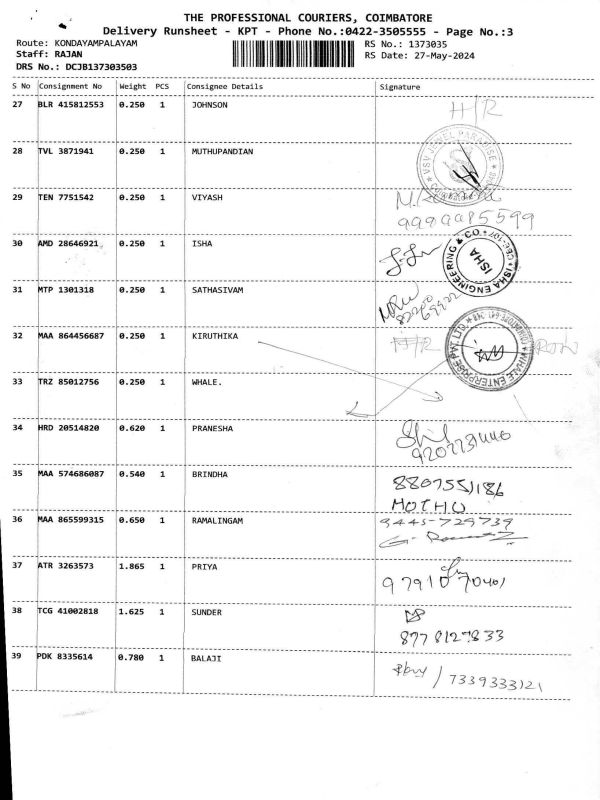 THE PROFESSIONAL COURIERS, COIMBATORE
Delivery Runsheet - KPT - Phone No.:0422-3505555 - Page No.:3
Route: KONDAYAMPALAYAM
RS No.: 1373035
Staff: RAJAN
RS Date: 27-May-2024
DRS No.: DCJB137303503
S No Consignment No Weight PCS Consignee Details Signature
27 BLR 415812553 0.250 1 JOHNSON H/R
28 TVL 3871941 0.250 1 MUTHUPANDIAN
VSV JEWEL PARADISE
29 TEN 7751542 0.250 1 VIYASH
9999985599
30 AMD 28646921 0.250 1 ISHA
ISHA ENGINEERING & CO.
ISHA
31 MTP 1301318 0.250 1 SATHASIVAM
32 MAA 864456687 0.250 1 KIRUTHIKA H/R
WHALE ENTERPRISE PVT. LTD.
33 TRZ 85012756 0.250 1 WHALE.
34 HRD 20514820 0.620 1 PRANESHA
35 MAA 574686087 0.540 1 BRINDHA
8807551186
MOTHU
36 MAA 865599315 0.650 1 RAMALINGAM
9445-729739
37 ATR 3263573 1.865 1 PRIYA
9791070401
38 TCG 41002818 1.625 1 SUNDER
8778127833
39 PDK 8335614 0.780 1 BALAJI
/ 7339333121